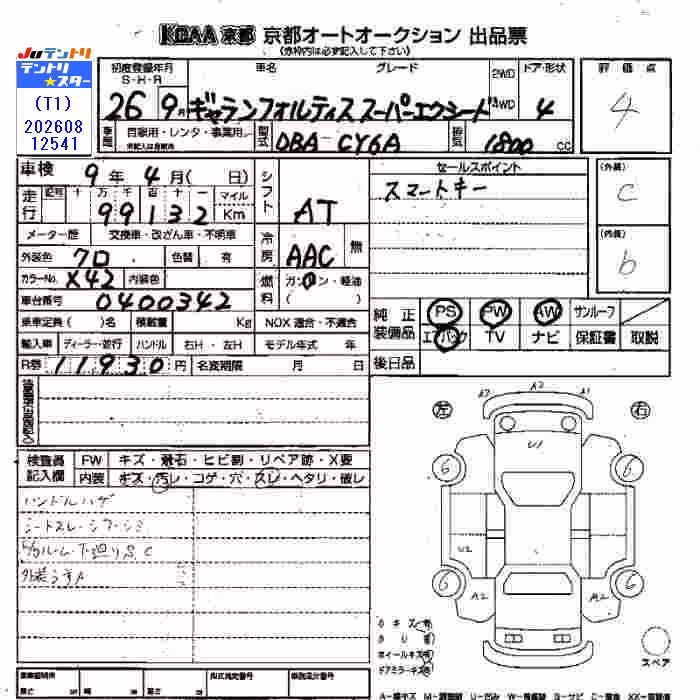 KCAA京都 京都オートオークション 出品票
(赤枠内は必ず記入して下さい)
JUテントリ
テントリ
★スター
(T1)
202608
12541
初度登録年月 車名 グレード 2WD ドア・形状 評価点
S・H・R
26 9月 ギャランフォルティス スーパーエクシード 4WD 4 4
車歴 自家用・レンタ・事業用 型式 DBA-CY6A 排気 1800 CC
車検 9年 4月( 日) シフト AT セールスポイント (外装)
スマートキー C
走行 記号 十 万 千 百 十 一 マイル
99132 Km
メーター歴 交換車・改ざん車・不明車 冷房 AAC 無 (内装)
外装色 クロ 色替 有 b
カラーNo. X42 内装色 燃料 ガソリン・軽油
( )
車台番号 0400342
純正装備品 PS PW AW サンルーフ
乗車定員( )名 積載量 Kg NOX適合・不適合 エアバック TV ナビ 保証書 取説
輸入車 ディーラー・並行 ハンドル 右H・左H モデル年式 年
後日品
R券 11930円 名変期限 月 日
左 右
A2 A2 A1
U1
6 6
U2
6 6
A2 A2
検査員記入欄 FW キズ・飛石・ヒビ割・リペア跡・X要
内装 キズ・汚レ・コゲ・穴・スレ・ヘタリ・破レ
ハンドルハゲ
シートスレ・シワ・シミ
下廻りS.C
スペア
ホイールキズ有
ドアミラーキズ有